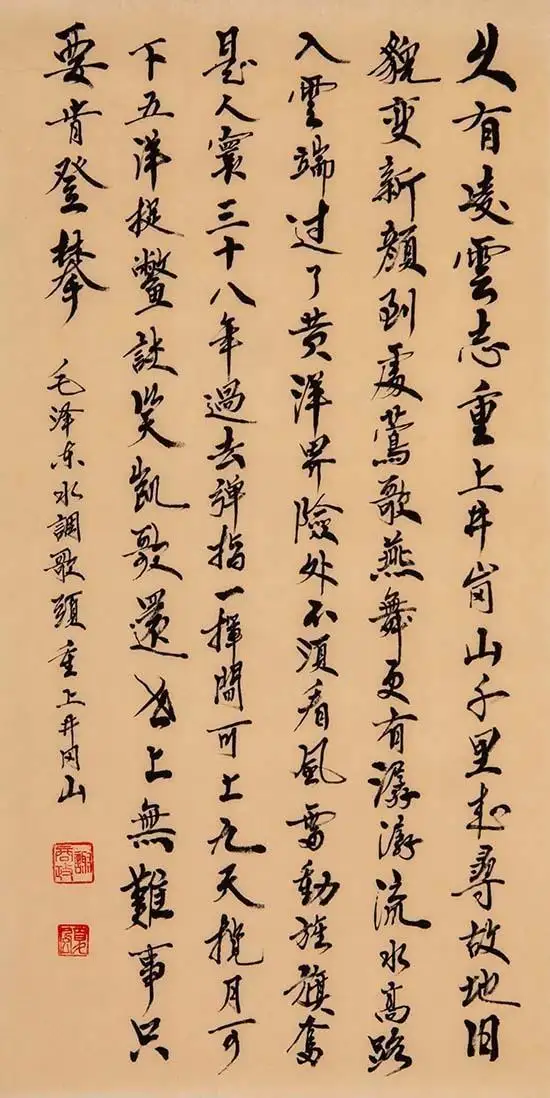 久有凌雲志重上井崗山千里来尋故地旧
貌变新顔到處莺歌燕舞更有潺潺流水高路
入雲端过了黄洋界險处不須看風雷動旌旗奮
是人寰三十八年過去弹指一揮間可上九天揽月可
下五洋捉鳖談笑凱歌還世上無難事只
要肯登攀
毛泽东水調歌頭重上井冈山